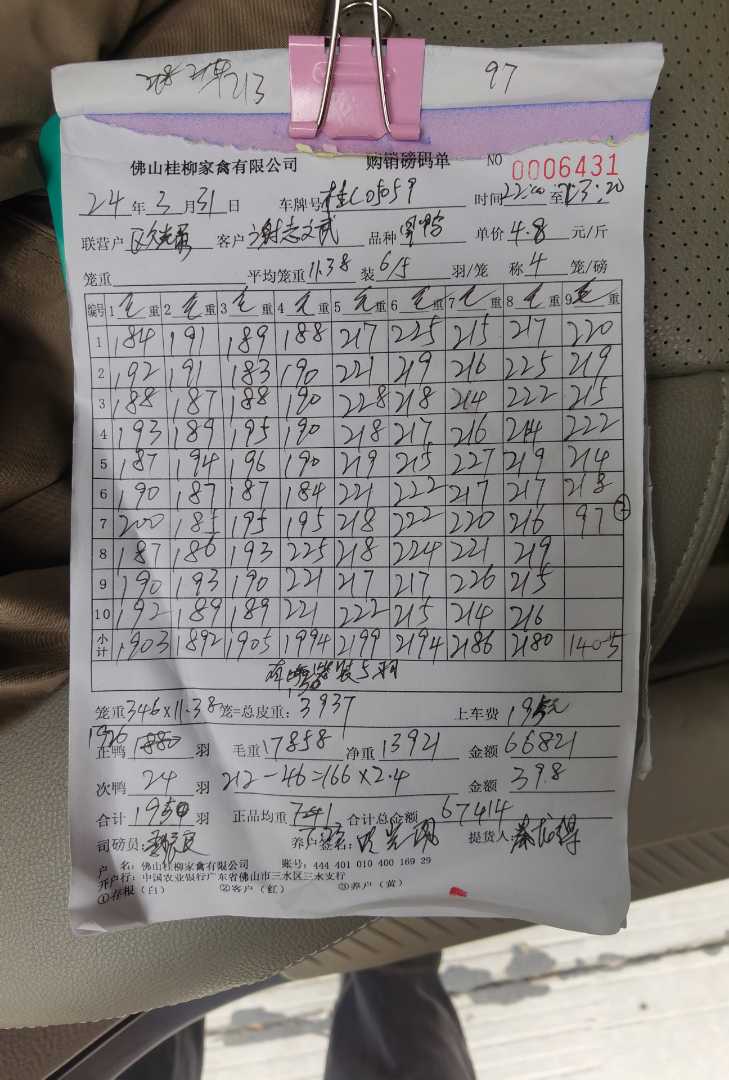 213 97
佛山桂柳家禽有限公司 购销磅码单 NO 0006431
24 年 3 月 31 日 车牌号 桂C05059 时间 22:00 至 23:20
联营户 客户 谢志文武 品种 单价 4.8 元/斤
笼重 平均笼重 11.38 装 6/5 羽/笼 称 4 笼/磅
编号 1 毛重 2 毛重 3 毛重 4 毛重 5 毛重 6 毛重 7 毛重 8 毛重 9 毛重
1 184 191 189 188 217 225 215 217 220
2 192 191 183 190 221 219 216 225 219
3 188 187 188 190 228 218 214 222 215
4 193 189 195 190 218 217 216 214 222
5 187 194 196 190 219 215 227 219 214
6 190 187 187 184 221 222 217 217 218
7 200 185 195 195 218 222 220 216 97 ②
8 187 186 193 225 218 224 221 219
9 190 193 190 221 217 217 226 215
10 192 189 189 221 222 215 214 216
小计 1903 1892 1905 1994 2199 2194 2186 2180 1405
装5羽
笼重 346×11.38 笼=总皮重: 3937 上车费 195元
1926
正鸭 1880 羽 毛重 17858 净重 13921 金额 66821
次鸭 24 羽 212-46=166×2.4 金额 398
合计 1950 羽 正品均重 7.41 合计总金额 67414
7.23
司磅员: 养户签名: 提货人:
户 名: 佛山桂柳家禽有限公司 账号: 444 401 010 400 169 29
开户行: 中国农业银行广东省佛山市三水区三水支行
①存根(白) ②客户(红) ③养户(黄)